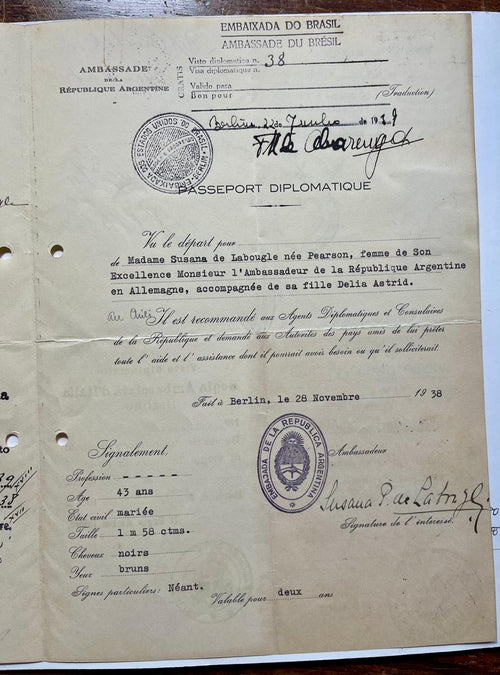 EMBAIXADA DO BRASIL
AMBASSADE DU BRÉSIL
Visto diplomatico n. 38
Visa diplomatique n.
GRATIS
Valido para
Bon pour (Traduction)
Berlim, 22 de Junho de 1939
AMBASSADE
DE LA
RÉPUBLIQUE ARGENTINE
EMBAIXADA DOS ESTADOS UNIDOS DO BRASIL
PASSEPORT DIPLOMATIQUE
Vu le départ pour
de Madame Susana de Labougle née Pearson, femme de Son
Excellence Monsieur l'Ambassadeur de la République Argentine
en Allemagne, accompagnée de sa fille Delia Astrid.
Il est recommandé aux Agents Diplomatiques et Consulaires
de la République et demandé aux Autorités des pays amis de lui prêter
toute l'aide et l'assistance dont il pourrait avoir besoin ou qu'il solliciterait.
Fait à Berlin, le 28 Novembre 1938
Signalement.
EMBAJADA DE LA REPUBLICA ARGENTINA
Ambassadeur
Profession - - - - - -
Age 43 ans
Etat civil mariée
Susana P. de Labougle
Taille 1 m 58 ctms.
Signature de l'intéressé.
Cheveux noirs
Yeux bruns
Signes particuliers: Néant.
Valable pour deux ans